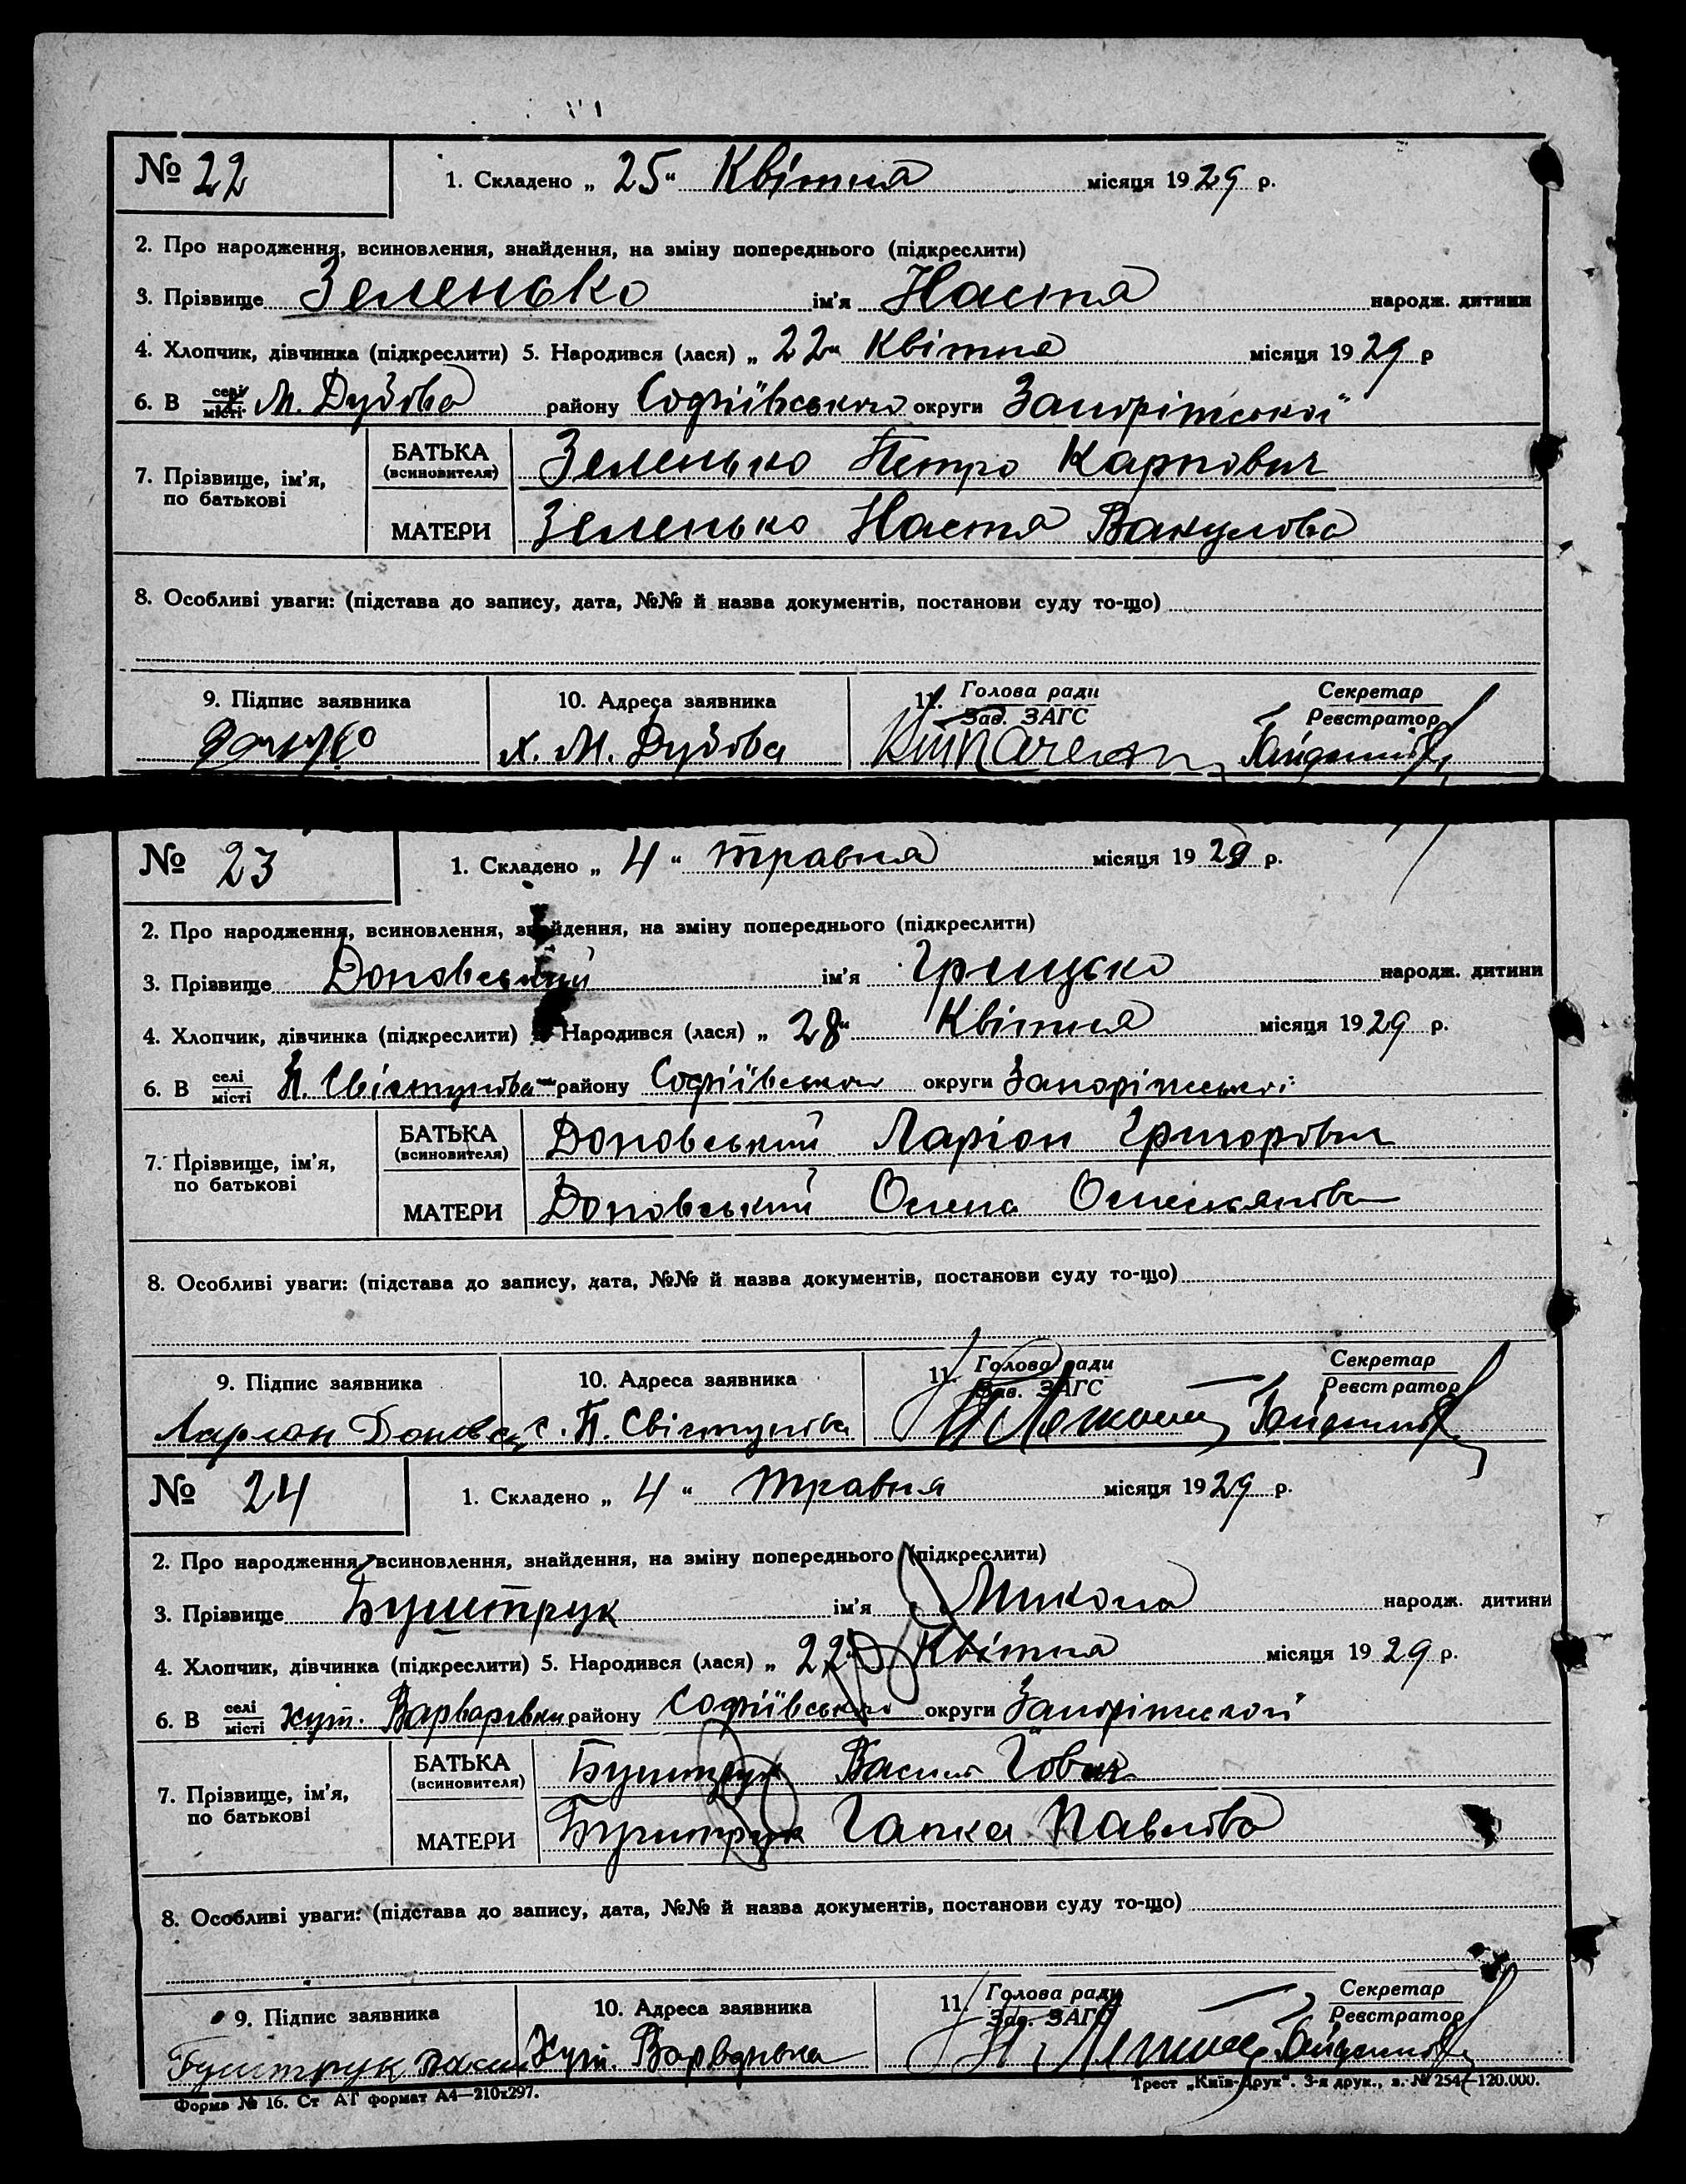 № 22 1. Складено „ 25 “ Квітня місяця 1929 р.
2. Про народження, всиновлення, знайдення, на зміну попереднього (підкреслити)
3. Прізвище Зеленько ім'я Настя народж. дитини
4. Хлопчик, дівчинка (підкреслити) 5. Народився (лася) „ 22 “ Квітня місяця 1929 р
6. В селі місті М. Дубова району Софіївського округи Запоріжської
7. Прізвище, ім'я, по батькові
БАТЬКА (всиновителя) Зеленько Петро Карпович
МАТЕРИ Зеленько Настя Вакулова
8. Особливі уваги: (підстава до запису, дата, №№ й назва документів, постанови суду то-що)
9. Підпис заявника 10. Адреса заявника 11. Голова ради Зав. ЗАГС Секретар Реєстратор
х. М. Дубова
№ 23 1. Складено „ 4 “ травня місяця 1929 р.
2. Про народження, всиновлення, знайдення, на зміну попереднього (підкреслити)
3. Прізвище Доповський ім'я Грицько народж. дитини
4. Хлопчик, дівчинка (підкреслити) Народився (лася) „ 28 “ Квітня місяця 1929 р.
6. В селі місті П. Свістунова району Софіївського округи Запоріжської
7. Прізвище, ім'я, по батькові
БАТЬКА (всиновителя) Доповський Ларіон Григорович
МАТЕРИ Доповський Олена
8. Особливі уваги: (підстава до запису, дата, №№ й назва документів, постанови суду то-що)
9. Підпис заявника 10. Адреса заявника 11. Голова ради Зав. ЗАГС Секретар Реєстратор
с. П. Свістунівка
№ 24 1. Складено „ 4 “ травня місяця 1929 р.
2. Про народження, всиновлення, знайдення, на зміну попереднього (підкреслити)
3. Прізвище Буштрук ім'я Микола народж. дитини
4. Хлопчик, дівчинка (підкреслити) 5. Народився (лася) „ 22 “ Квітня місяця 1929 р.
6. В селі місті хут. Варварівки району Софіївського округи Запоріжської
7. Прізвище, ім'я, по батькові
БАТЬКА (всиновителя) Буштрук Василь
МАТЕРИ Буштрук Гапка Павлова
8. Особливі уваги: (підстава до запису, дата, №№ й назва документів, постанови суду то-що)
9. Підпис заявника 10. Адреса заявника 11. Голова ради Зав. ЗАГС Секретар Реєстратор
Буштрук Хут.
Форма № 16. Ст АГ формат А4—210х297. Трест „Київ-Друк“. 3-я друк., з. № 254—120.000.